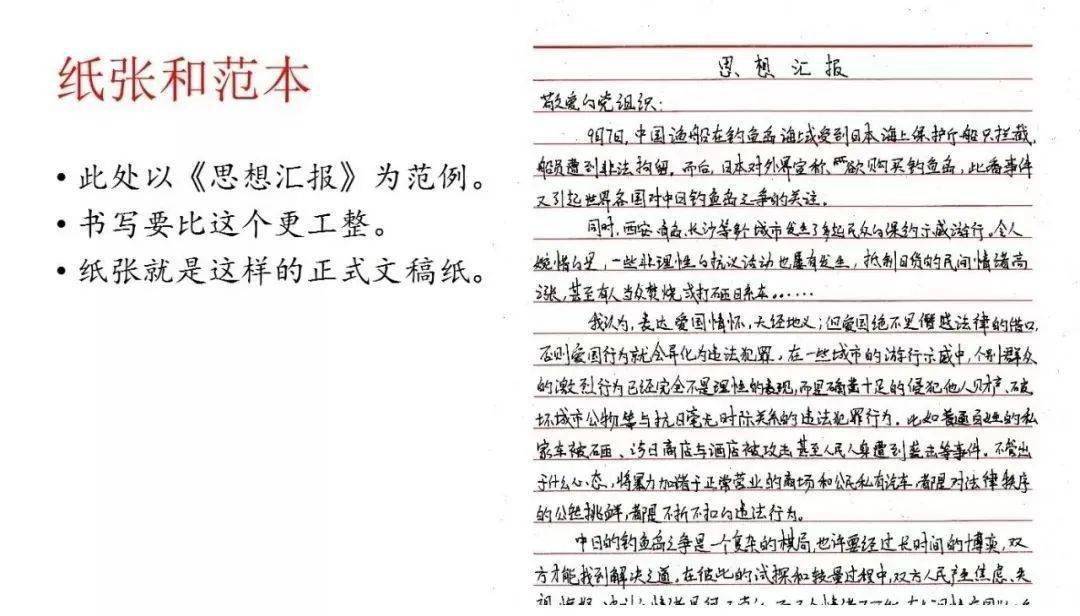 纸张和范本
• 此处以《思想汇报》为范例。
• 书写要比这个更工整。
• 纸张就是这样的正式文稿纸。
思想汇报
敬爱的党组织：
9月7日，中国渔船在钓鱼岛海域受到日本海上保护厅船只拦截，
船员遭到非法拘留。而后，日本对外界宣称，欲购买钓鱼岛，此番事件
又引起世界各国对中日钓鱼岛之争的关注。
同时，西安、青岛、长沙等城市发生了多起民众的保钓示威游行。令人
惋惜的是，一些非理性的抗议活动也屡有发生，抵制日货的民间情绪高
涨，甚至有人当众焚烧或打砸日系车……
我认为，表达爱国情怀，天经地义；但爱国绝不是僭越法律的借口，
否则爱国行为就会异化为违法犯罪。在一些城市的游行示威中，个别群众
的激烈行为已经完全不是理性的表现，而是确凿十足的侵犯他人财产、破
坏城市公物等与抗日毫无实际关系的违法犯罪行为。比如普通的私
家车被砸、涉日商店与酒店被攻击甚至人民人身遭到袭击等事件。不管出
于什么心态，将暴力加诸于正常营业的商场和公民私有汽车，都是对法律秩序
的公然挑衅，都是不折不扣的违法行为。
中日的钓鱼岛之争是一个复杂的棋局，也许要经过长时间的博弈，双
方才能找到解决之道。在彼此的试探和较量过程中，双方人民产生焦虑、失